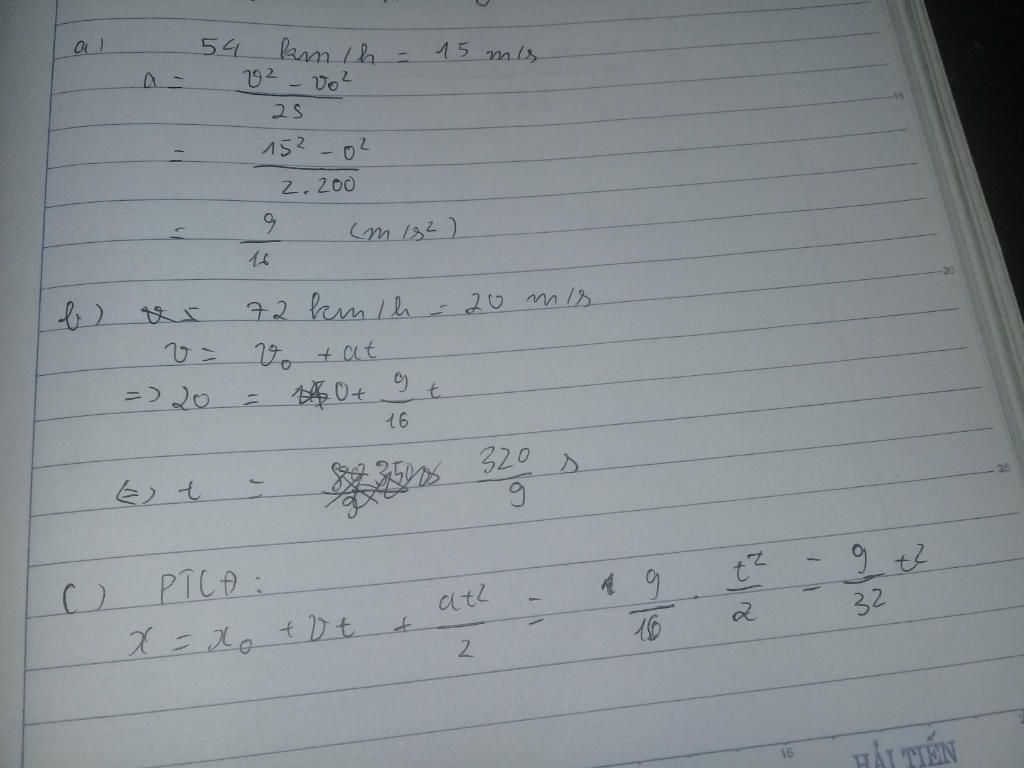 a) 54 km/h = 15 m/s
a = v² - v₀² / 2s
= 15² - 0² / 2.200
= 9/16 (m/s²)
15
b) 72 km/h = 20 m/s
20
v = v₀ + at
=> 20 = 0 + 9/16 t
<=> t = 320/9 s
25
c) PTCĐ:
x = x₀ + vt + at²/2 = 9/16 . t²/2 = 9/32 t²
15
HẢI TIẾN